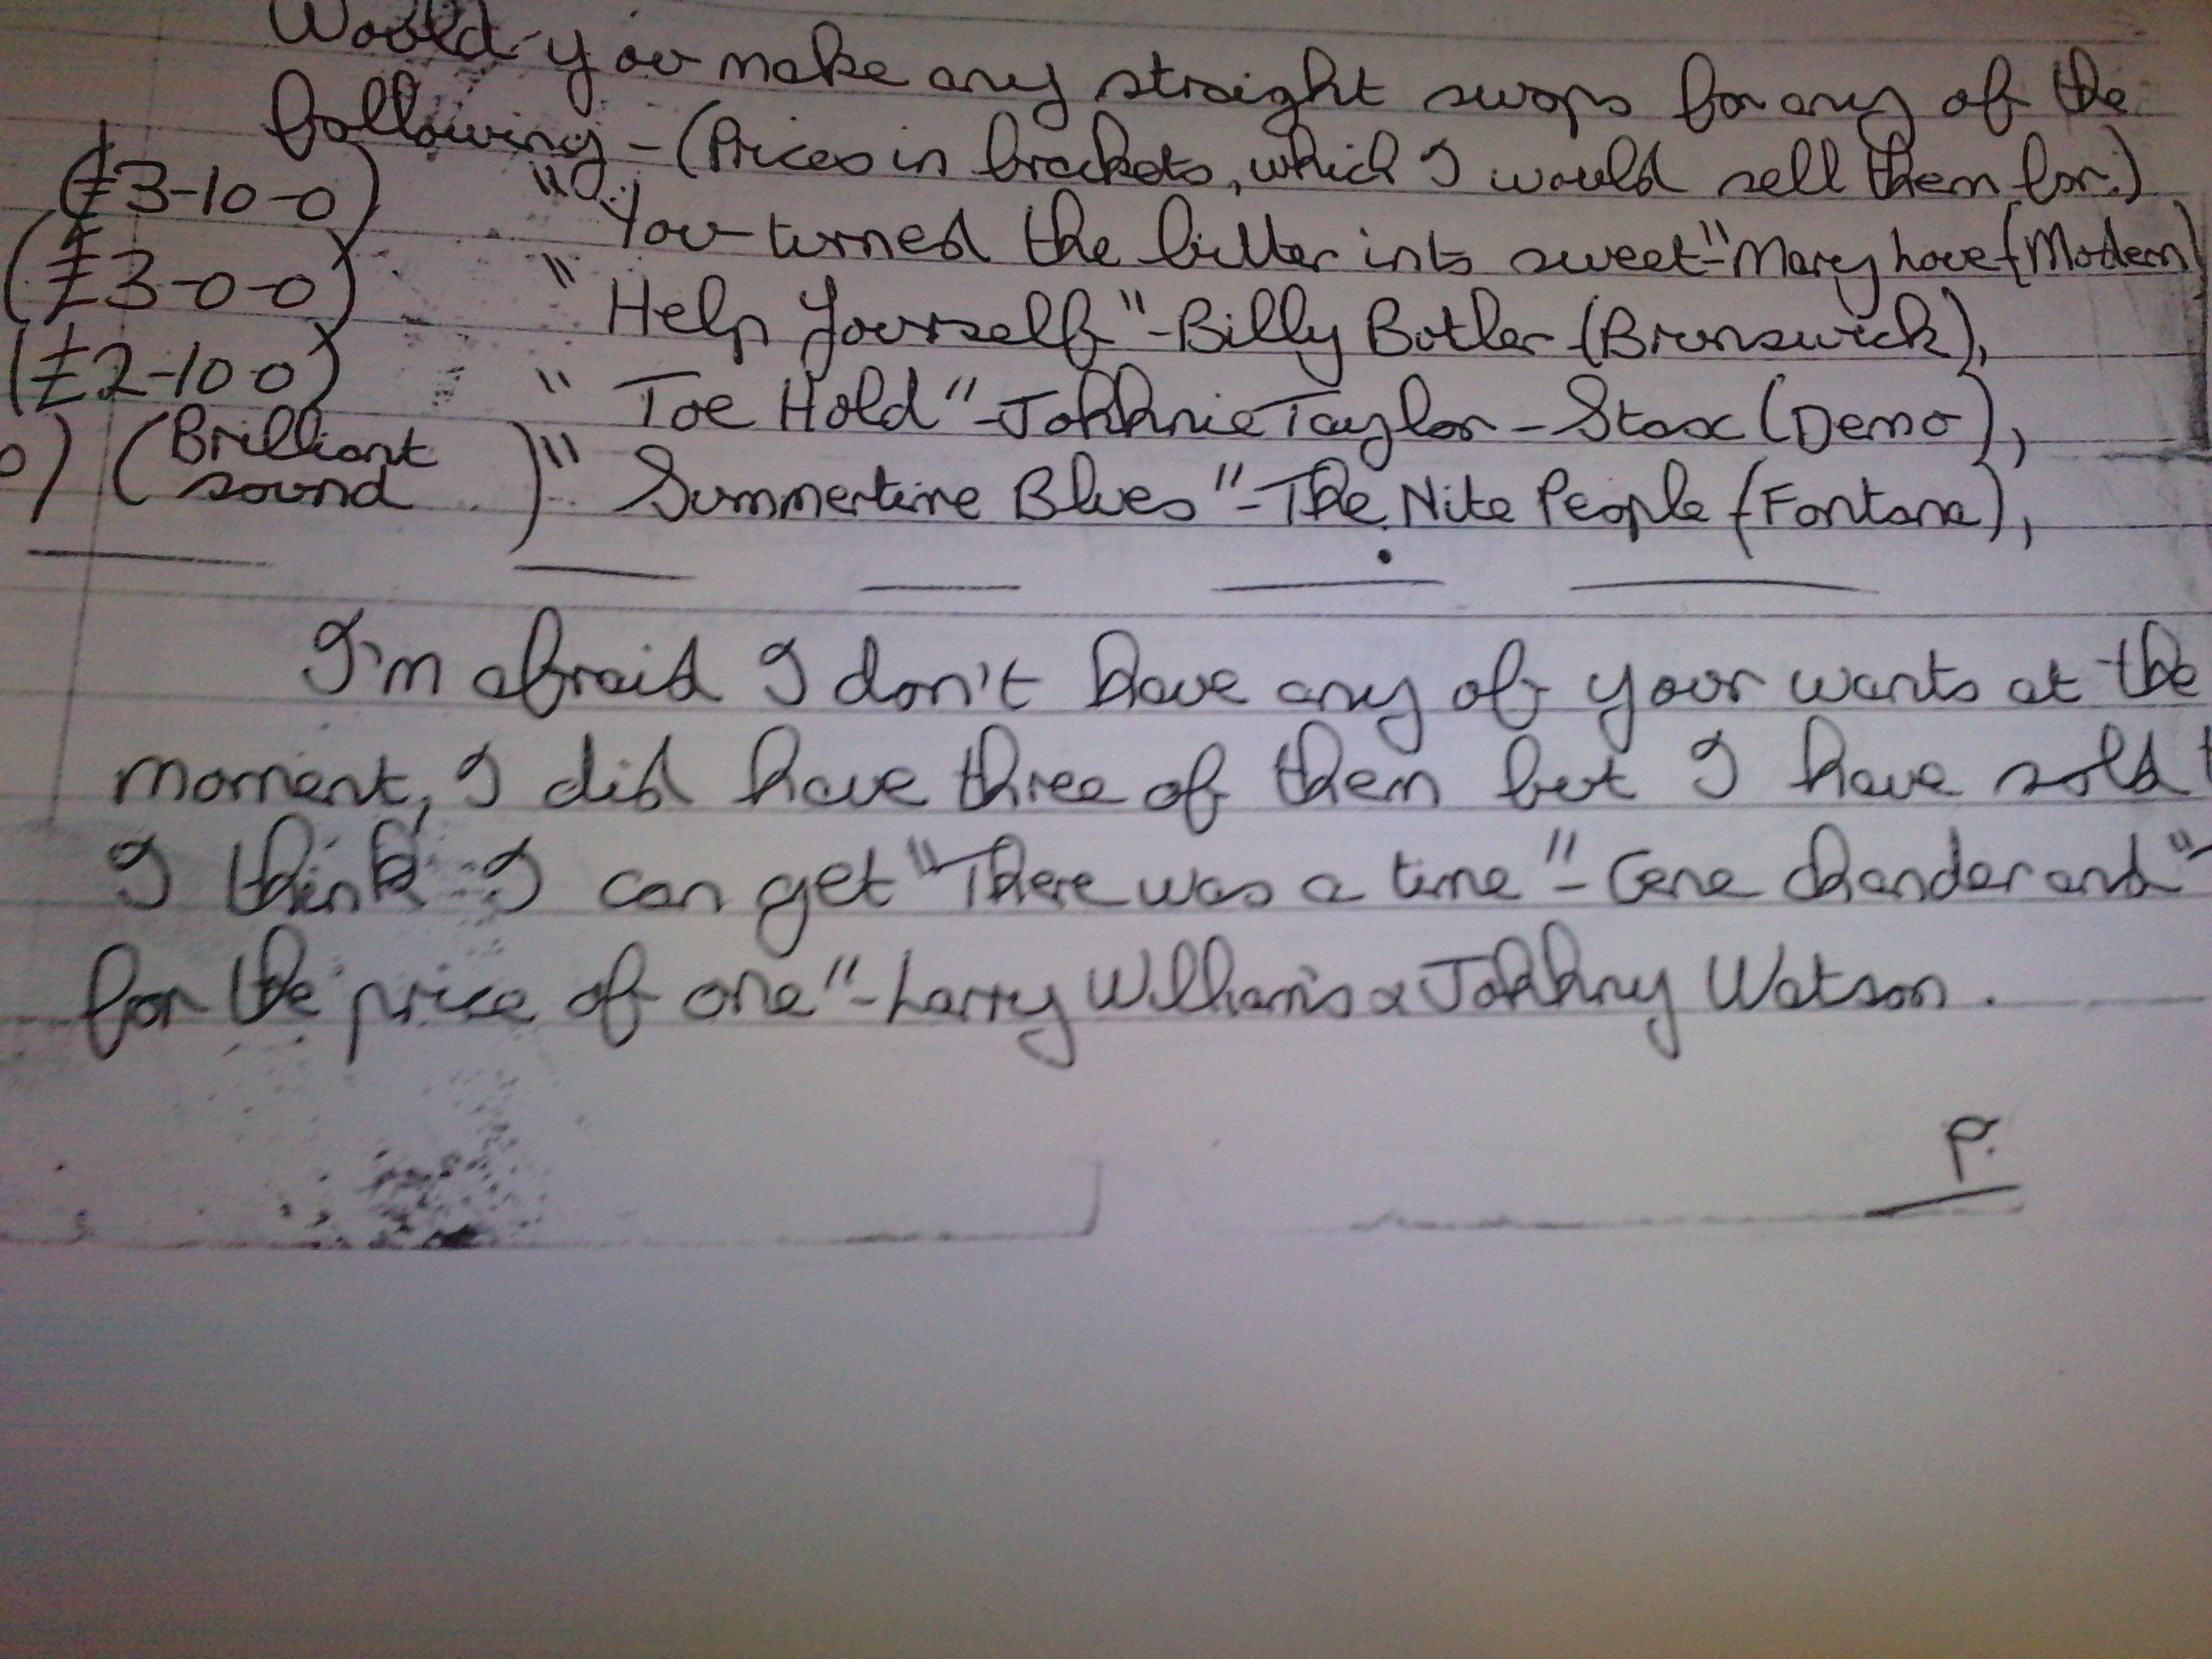 Would you make any straight swops for any of the
following - (Prices in brackets, which I would sell them for.)
(£3-10-0) "You turned the bitter into sweet" - Mary Love (Modern)
(£3-0-0) "Help Yourself" - Billy Butler (Brunswick),
(£2-10-0) "Toe Hold" - Johhnie Taylor - Stax (Demo),
0) (Brilliant sound) "Summertime Blues" - The Nite People (Fontana),
I'm afraid I don't have any of your wants at the
moment, I did have three of them but I have sold
I think I can get "There was a time" - Gene Chander and "
for the price of one" - Larry Williams & Johhny Watson.
P.